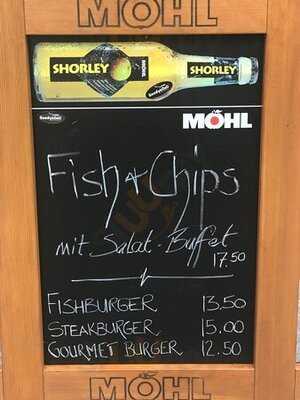 MÖHL
SHORLEY MÖHL SHORLEY
MÖHL
Fish + Chips
mit Salat-Buffet
17.50
FISHBURGER 13.50
STEAKBURGER 15.00
GOURMET BURGER 12.50
MÖHL